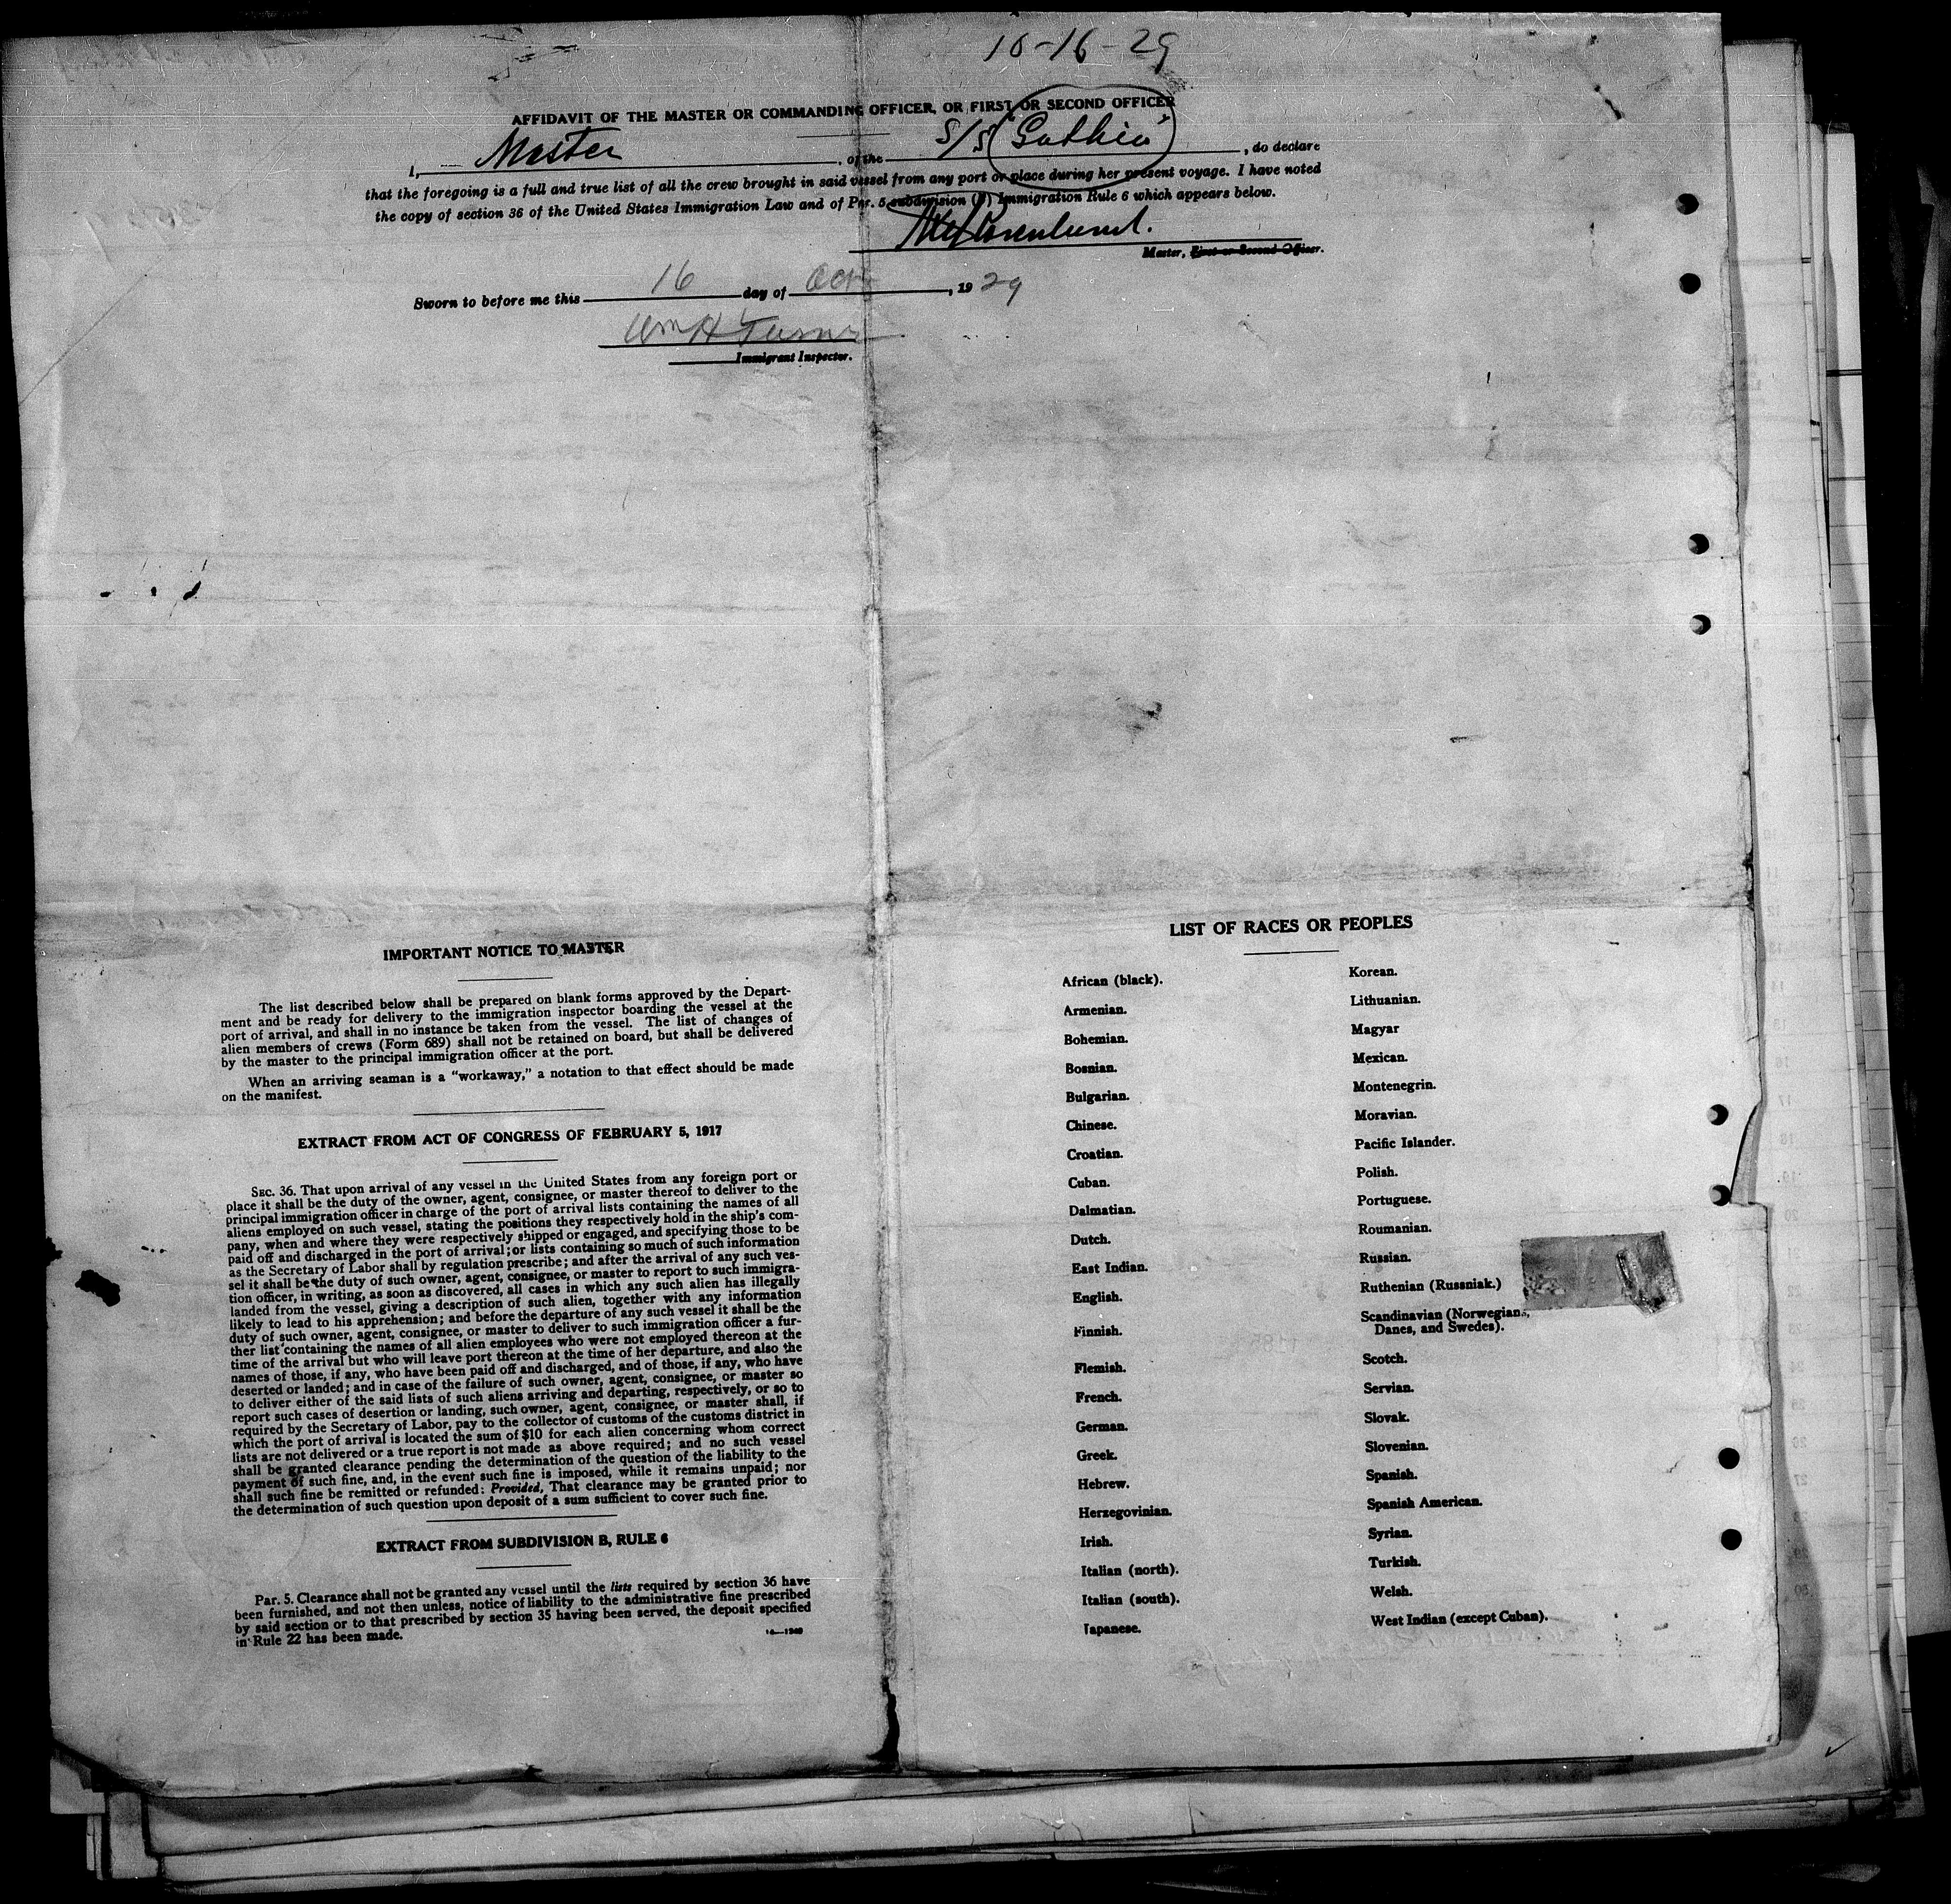 10-16-29
AFFIDAVIT OF THE MASTER OR COMMANDING OFFICER, OR FIRST OR SECOND OFFICER
I, Master, of the S/S "Gothia", do declare
that the foregoing is a full and true list of all the crew brought in said vessel from any port or place during her present voyage. I have noted
the copy of section 36 of the United States Immigration Law and of Par. 5 subdivision (B) Immigration Rule 6 which appears below.
Master, First or Second Officer.
Sworn to before me this 16 day of Oct, 1929
Wm H Turner
Immigrant Inspector.
IMPORTANT NOTICE TO MASTER
The list described below shall be prepared on blank forms approved by the Depart-
ment and be ready for delivery to the immigration inspector boarding the vessel at the
port of arrival, and shall in no instance be taken from the vessel. The list of changes of
alien members of crews (Form 689) shall not be retained on board, but shall be delivered
by the master to the principal immigration officer at the port.
When an arriving seaman is a "workaway," a notation to that effect should be made
on the manifest.
EXTRACT FROM ACT OF CONGRESS OF FEBRUARY 5, 1917
SEC. 36. That upon arrival of any vessel in the United States from any foreign port or
place it shall be the duty of the owner, agent, consignee, or master thereof to deliver to the
principal immigration officer in charge of the port of arrival lists containing the names of all
aliens employed on such vessel, stating the positions they respectively hold in the ship's com-
pany, when and where they were respectively shipped or engaged, and specifying those to be
paid off and discharged in the port of arrival; or lists containing so much of such information
as the Secretary of Labor shall by regulation prescribe; and after the arrival of any such ves-
sel it shall be the duty of such owner, agent, consignee, or master to report to such immigra-
tion officer, in writing, as soon as discovered, all cases in which any such alien has illegally
landed from the vessel, giving a description of such alien, together with any information
likely to lead to his apprehension; and before the departure of any such vessel it shall be the
duty of such owner, agent, consignee, or master to deliver to such immigration officer a fur-
ther list containing the names of all alien employees who were not employed thereon at the
time of the arrival but who will leave port thereon at the time of her departure, and also the
names of those, if any, who have been paid off and discharged, and of those, if any, who have
deserted or landed; and in case of the failure of such owner, agent, consignee, or master so
to deliver either of the said lists of such aliens arriving and departing, respectively, or so to
report such cases of desertion or landing, such owner, agent, consignee, or master shall, if
required by the Secretary of Labor, pay to the collector of customs of the customs district in
which the port of arrival is located the sum of $10 for each alien concerning whom correct
lists are not delivered or a true report is not made as above required; and no such vessel
shall be granted clearance pending the determination of the question of the liability to the
payment of such fine, and, in the event such fine is imposed, while it remains unpaid; nor
shall such fine be remitted or refunded: Provided, That clearance may be granted prior to
the determination of such question upon deposit of a sum sufficient to cover such fine.
EXTRACT FROM SUBDIVISION B, RULE 6
Par. 5. Clearance shall not be granted any vessel until the lists required by section 36 have
been furnished, and not then unless, notice of liability to the administrative fine prescribed
by said section or to that prescribed by section 35 having been served, the deposit specified
in Rule 22 has been made.
LIST OF RACES OR PEOPLES
African (black).
Armenian.
Bohemian.
Bosnian.
Bulgarian.
Chinese.
Croatian.
Cuban.
Dalmatian.
Dutch.
East Indian.
English.
Finnish.
Flemish.
French.
German.
Greek.
Hebrew.
Herzegovinian.
Irish.
Italian (north).
Italian (south).
Japanese.
Korean.
Lithuanian.
Magyar
Mexican.
Montenegrin.
Moravian.
Pacific Islander.
Polish.
Portuguese.
Roumanian.
Russian.
Ruthenian (Russniak.)
Scandinavian (Norwegians,
Danes, and Swedes).
Scotch.
Servian.
Slovak.
Slovenian.
Spanish.
Spanish American.
Syrian.
Turkish.
Welsh.
West Indian (except Cuban).